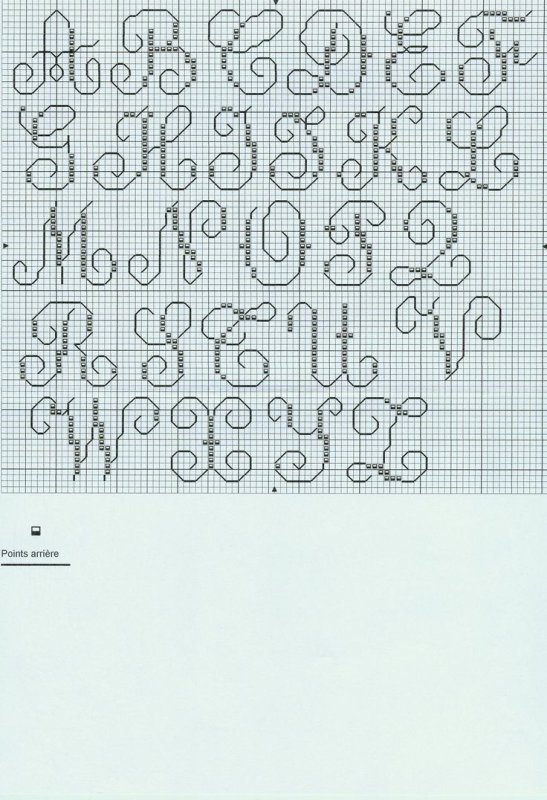 A B C D E F
G H I J K L
M N O P Q
R S T U V
W X Y Z
Points arrière